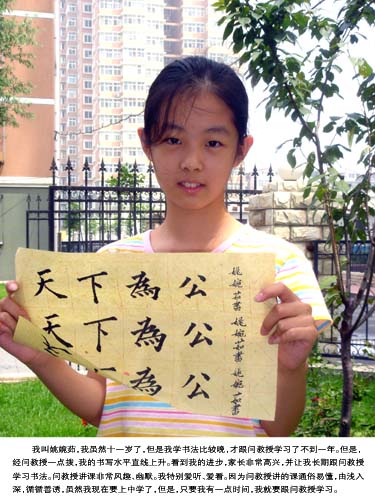 天下為公
天下為公
為公
姚婉茹書 姚婉茹書 姚婉茹書
我叫姚婉茹,我虽然十一岁了,但是我学书法比较晚,才跟问教授学习了不到一年。但是,
经问教授一点拨,我的书写水平直线上升。看到我的进步,家长非常高兴,并让我长期跟问教授
学习书法。问教授讲课非常风趣、幽默。我特别爱听、爱看。因为问教授讲的课通俗易懂,由浅入
深,循循善诱,虽然我现在要上中学了,但是,只要我有一点时间,我就要跟问教授学习。